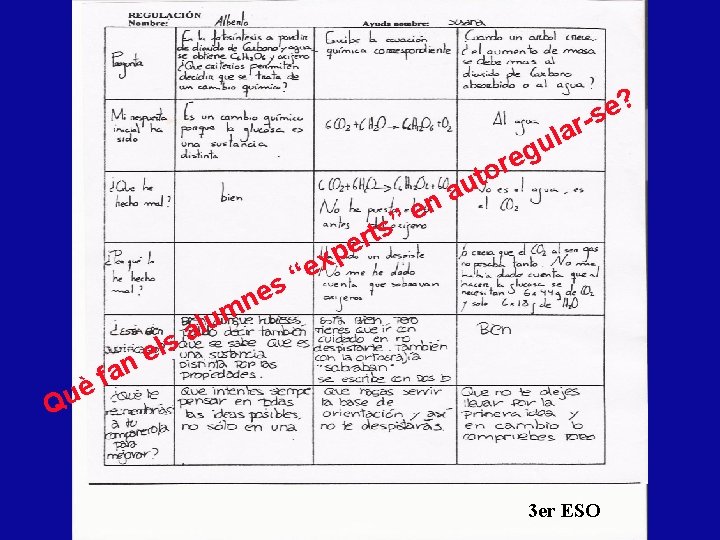 REGULACIÓN
Nombre: Alberto Ayuda nombre: susana
Pregunta
En la fotosíntesis a partir
de dióxido de Carbono y agua
se obtiene C6H12O6 y oxígeno
¿Que criterios permiten
decidir que se trata de
un cambio químico?
Escribe la ecuación
química correspondiente
Cuando un arbol crece
¿el aumento de masa
se debe mas al
dioxido de Carbono
absorbido o al agua?
Mi respuesta
inicial ha
sido
Es un cambio químico
porque la glucosa es
una sustancia
distinta
6CO2+6H2O→C6H12O6+O2
Al agua
¿Que he
hecho mal?
bien
6CO2+6H2O→C6H12O6+6O2
No he puesto
antes del oxigeno
No es el agua, es
el CO2
¿Por qué lo
he hecho
mal?
Ha sido un despiste
No me he dado
cuenta que sobraban
oxígenos
creia que el CO2 al ser gas
no pesaba tanto. No me
había dado cuenta que al
hacer la glucosa se
necesitan 6x44g de CO2
y solo 6x18g de H2O
Aunque hubieses
podido decir también
que se sabe que es
una sustancia
distinta por las
propiedades.
Está bien, pero
tienes que ir con
cuidado en no
despistarte. También
con la ortografía
"sobraban"
se escribe con dos b
Bien
¿Qué te
recomendarías
a tu
compañero/a
para
mejorar?
Que intentes siempre
pensar en todas
las ideas posibles,
no sólo en una
Que hagas servir
la base de
orientación y así
no te despistarás.
Que no te dejes
llevar por la
primera idea y
en cambio lo
compruebes todo
Què fan els alumnes “experts” en autoregular-se?
3 er ESO